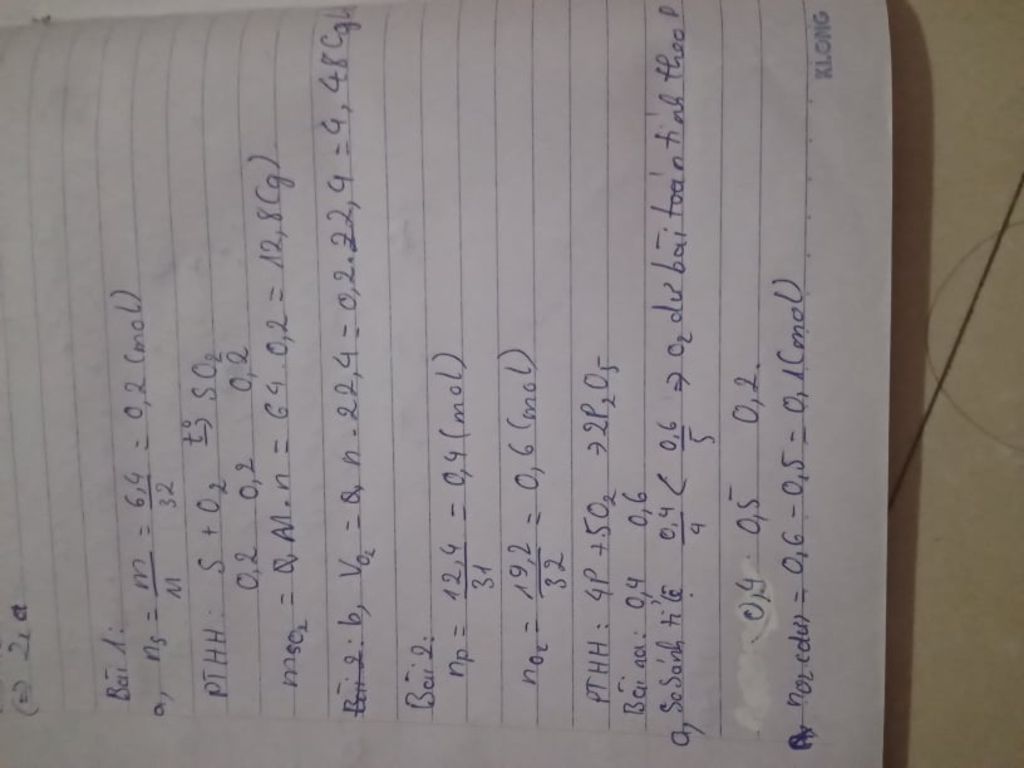 (=) 2, a
Bài 1:
a, nS = m/M = 6,4/32 = 0,2 (mol)
PTHH: S + O2 t°→ SO2
0,2 0,2 0,2
mSO2 = M.n = 64.0,2 = 12,8(g)
Bài 2: b, VO2 = n.22,4 = 0,2.22,4 = 4,48(g)
Bài 2:
nP = 12,4/31 = 0,4 (mol)
nO2 = 19,2/32 = 0,6 (mol)
PTHH: 4P + 5O2 → 2P2O5
Bài ra: 0,4 0,6
a, So Sánh tỉ lệ 0,4/4 < 0,6/5 ⇒ O2 dư bài toán tính theo P
0,4 0,5 0,2
nO2 (dư) = 0,6 - 0,5 = 0,1 (mol)
KLONG